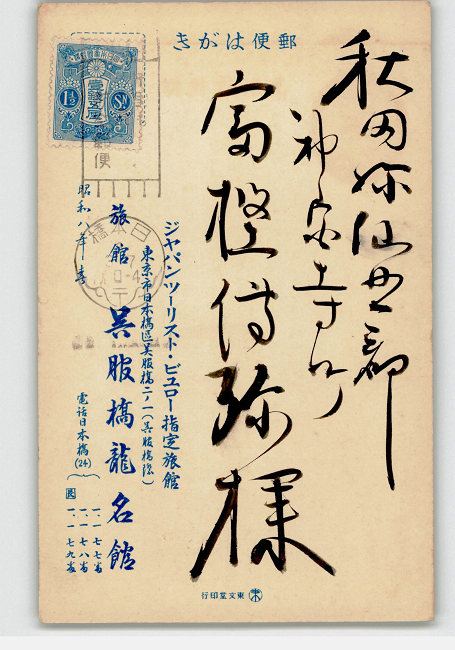 郵便はがき
秋田縣仙北郡
神宮寺町
富樫傳弥様
ジャパンツーリスト・ビユロー指定旅館
東京市日本橋區呉服橋二ノ一(呉服橋際)
旅館 呉服橋龍名館
電話日本橋(24)
一一七七番
一一七八番
一一七九番
昭和八年 春
1½ Sn
壹錢五厘
日本橋
便
東文堂印行